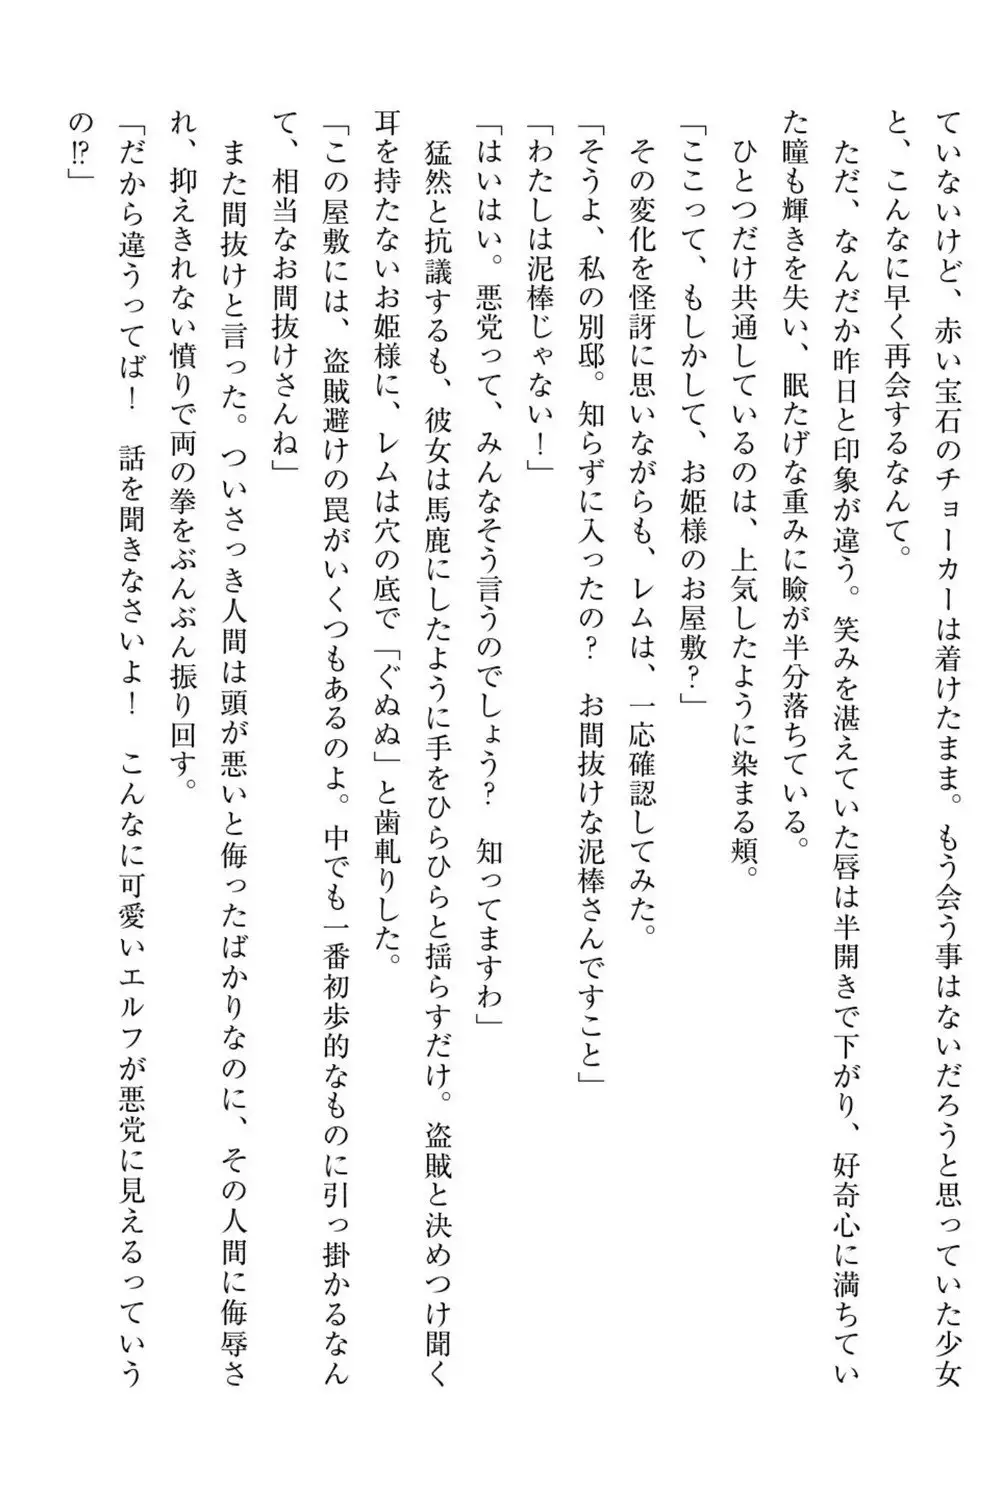 ていないけど、赤い宝石のチョーカーは着けたまま。もう会う事はないだろうと思っていた少女
と、こんなに早く再会するなんて。
　ただ、なんだか昨日と印象が違う。笑みを湛えていた唇は半開きで下がり、好奇心に満ちてい
た瞳も輝きを失い、眠たげな重みに瞼が半分落ちている。
　ひとつだけ共通しているのは、上気したように染まる頬。
「ここって、もしかして、お姫様のお屋敷？」
　その変化を怪訝に思いながらも、レムは、一応確認してみた。
「そうよ、私の別邸。知らずに入ったの？　お間抜けな泥棒さんですこと」
「わたしは泥棒じゃない！」
「はいはい。悪党って、みんなそう言うのでしょう？　知ってますわ」
　猛然と抗議するも、彼女は馬鹿にしたように手をひらひらと揺らすだけ。盗賊と決めつけ聞く
耳を持たないお姫様に、レムは穴の底で「ぐぬぬ」と歯軋りした。
「この屋敷には、盗賊避けの罠がいくつもあるのよ。中でも一番初歩的なものに引っ掛かるなん
て、相当なお間抜けさんね」
　また間抜けと言った。ついさっき人間は頭が悪いと侮ったばかりなのに、その人間に侮辱さ
れ、抑えきれない憤りで両の拳をぶんぶん振り回す。
「だから違うってば！　話を聞きなさいよ！　こんなに可愛いエルフが悪党に見えるっていう
の!?」